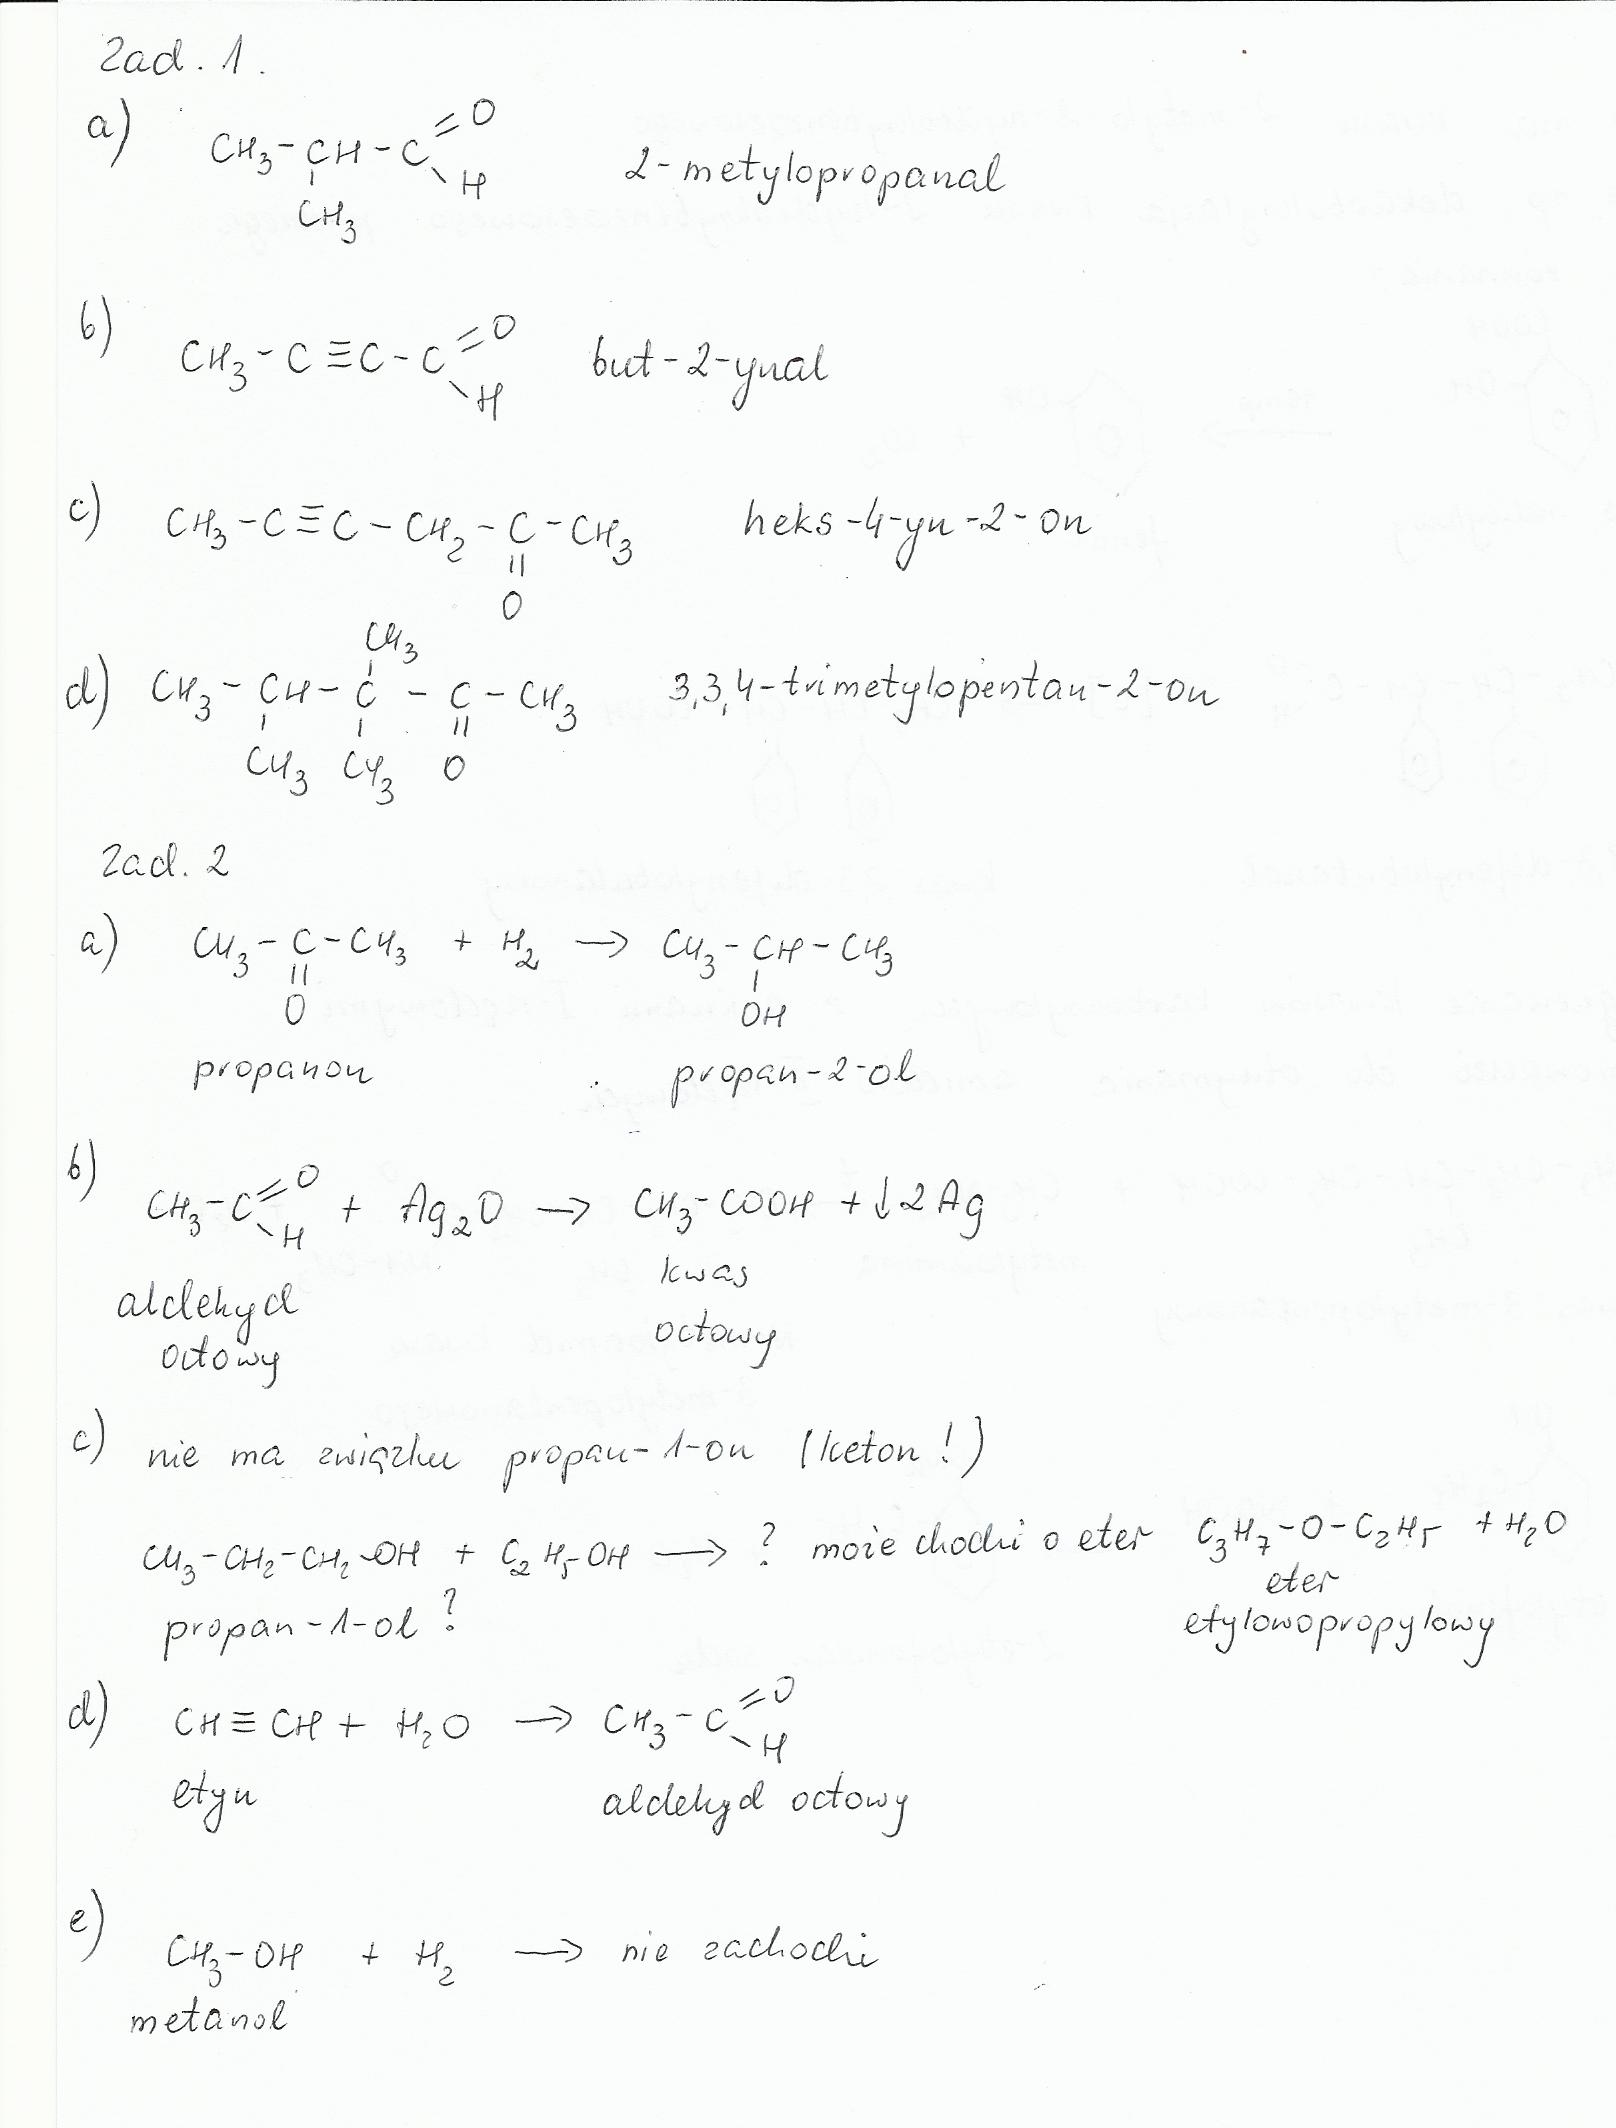 Zad. 1.
a) CH3-CH-C=O
-H
CH3
2-metylopropanal
b) CH3-C≡C-C=O
-H
but-2-ynal
c) CH3-C≡C-CH2-C-CH3 heks-4-yn-2-on
O
CH3
d) CH3-CH-C-C-CH3 3,3,4-trimetylopentan-2-on
CH3 CH3 O
Zad. 2
a) CH3-C-CH3 + H2 → CH3-CH-CH3
O OH
propanon propan-2-ol
b) CH3-C=O + Ag2O → CH3-COOH + ↓2Ag
-H
aldehyd octowy
kwas octowy
c) nie ma związku propan-1-on (keton!)
CH3-CH2-CH2-OH + C2H5OH → ? może chodzi o eter C3H7-O-C2H5 + H2O
propan-1-ol?
eter
etylowopropylowy
d) CH≡CH + H2O → CH3-C=O
-H
etyn aldehyd octowy
e) CH3-OH + H2 → nie zachodzi
metanol